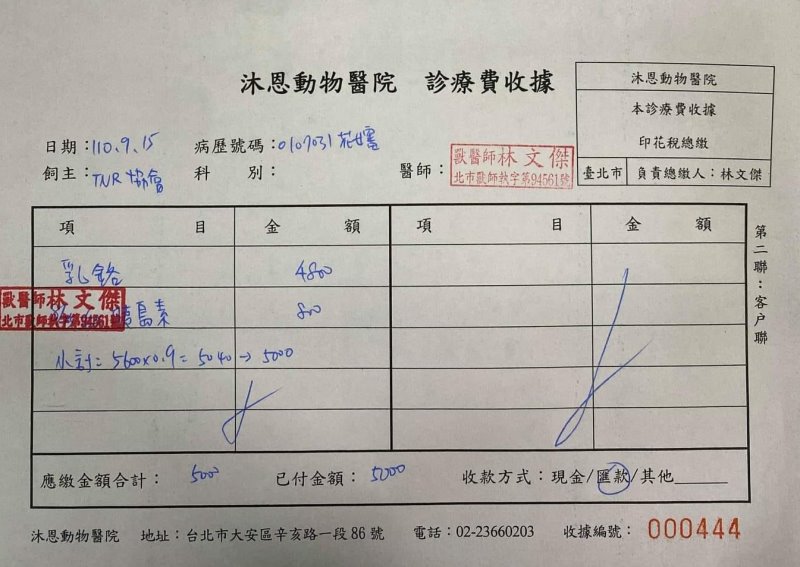 沐恩動物醫院 診療費收據
沐恩動物醫院
本診療費收據
印花稅總繳
臺北市 負責總繳人：林文傑
日期：110.9.15 病歷號碼：0107031
飼主：TNR 協會 科 別： 醫師：
獸醫師林文傑
北市獸師執字第94561號
項 目 金 額 項 目 金 額
乳鉻 4800
獸醫師林文傑
北市獸師執字第94561號
胰島素 800
小計=5600x0.9=5040→5000
應繳金額合計：5000 已付金額：5000 收款方式：現金/匯款/其他
第二聯：客户聯
沐恩動物醫院 地址：台北市大安區辛亥路一段86號 電話：02-23660203 收據編號：000444